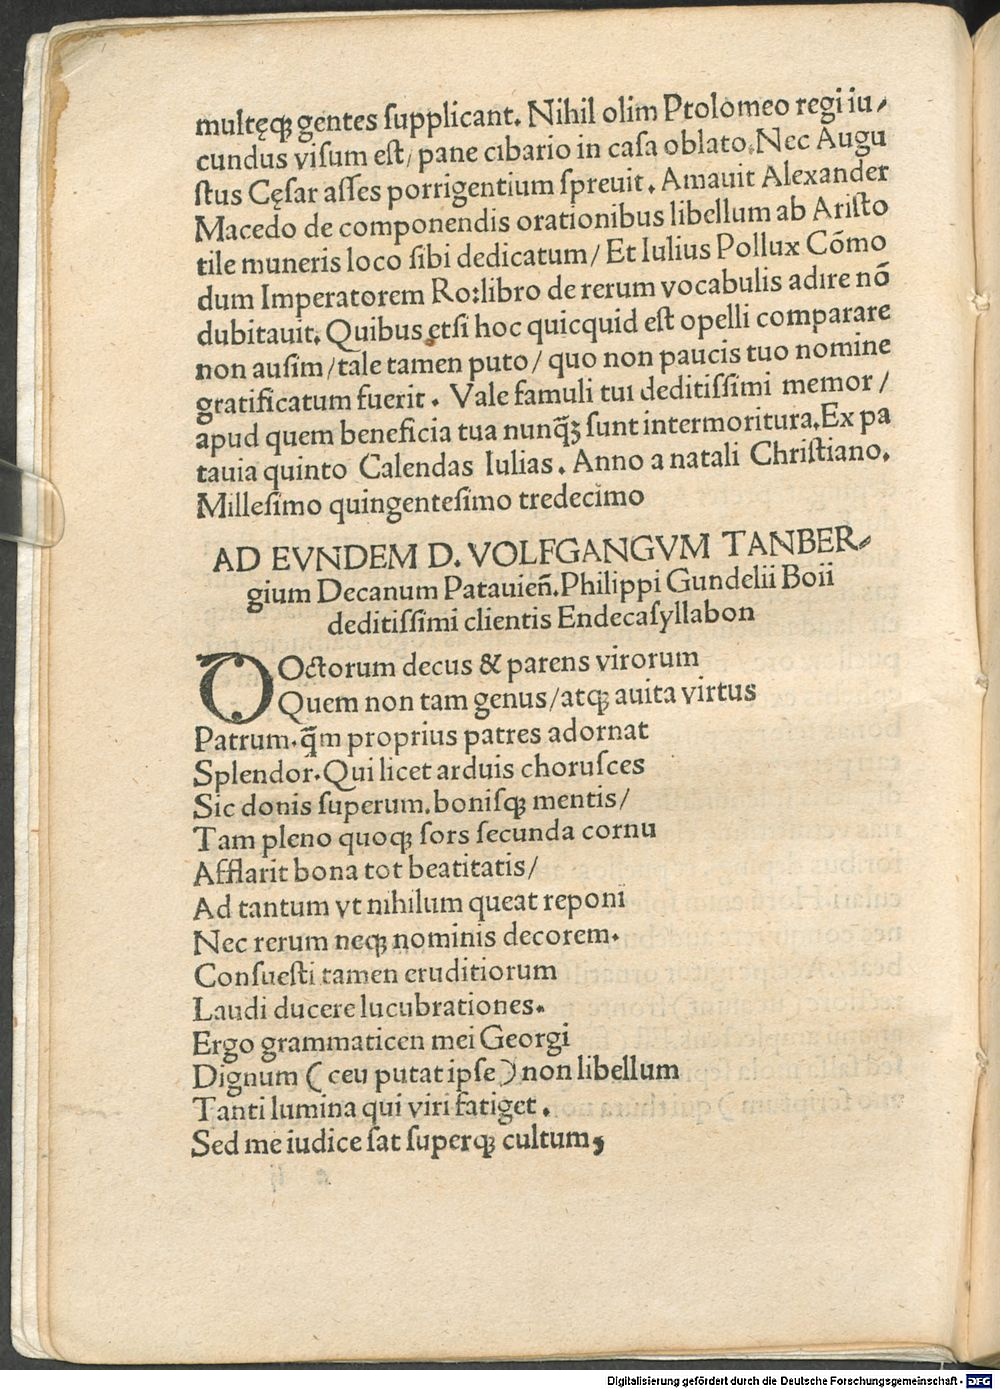 multęqꝫ gentes ſupplicant. Nihil olim Ptolomeo regi iu⸗
cundus viſum eſt/ pane cibario in caſa oblato. Nec Augu
ſtus Cęſar aſſes porrigentium ſpreuit. Amauit Alexander
Macedo de componendis orationibus libellum ab Ariſto
tile muneris loco ſibi dedicatum/ Et Iulius Pollux Cōmo
dum Imperatorem Ro:libro de rerum vocabulis adire nō
dubitauit. Quibus etſi hoc quicquid eſt opelli comparare
non auſim/tale tamen puto/ quo non paucis tuo nomine
gratificatum fuerit. Vale famuli tui deditiſſimi memor/
apud quem beneficia tua nunq̄ꝫ ſunt intermoritura.Ex pa
tauia quinto Calendas Iulias. Anno a natali Chriſtiano.
Milleſimo quingenteſimo tredecimo
AD EVNDEM D. VOLFGANGVM TANBER⸗
gium Decanum Patauieñ.Philippi Gundelii Boii
deditiſſimi clientis Endecaſyllabon
DOctorum decus & parens virorum
Quem non tam genus/atqꝫ auita virtus
Patrum.q̄m proprius patres adornat
Splendor.Qui licet arduis choruſces
Sic donis ſuperum.boniſqꝫ mentis/
Tam pleno quoqꝫ ſors ſecunda cornu
Afflarit bona tot beatitatis/
Ad tantum vt nihilum queat reponi
Nec rerum neqꝫ nominis decorem.
Conſueſti tamen eruditiorum
Laudi ducere lucubrationes.
Ergo grammaticen mei Georgi
Dignum (ceu putat ipſe) non libellum
Tanti lumina qui viri fatiget.
Sed me iudice ſat ſuperqꝫ cultum,
Digitalisierung gefördert durch die Deutsche Forschungsgemeinschaft - DFG